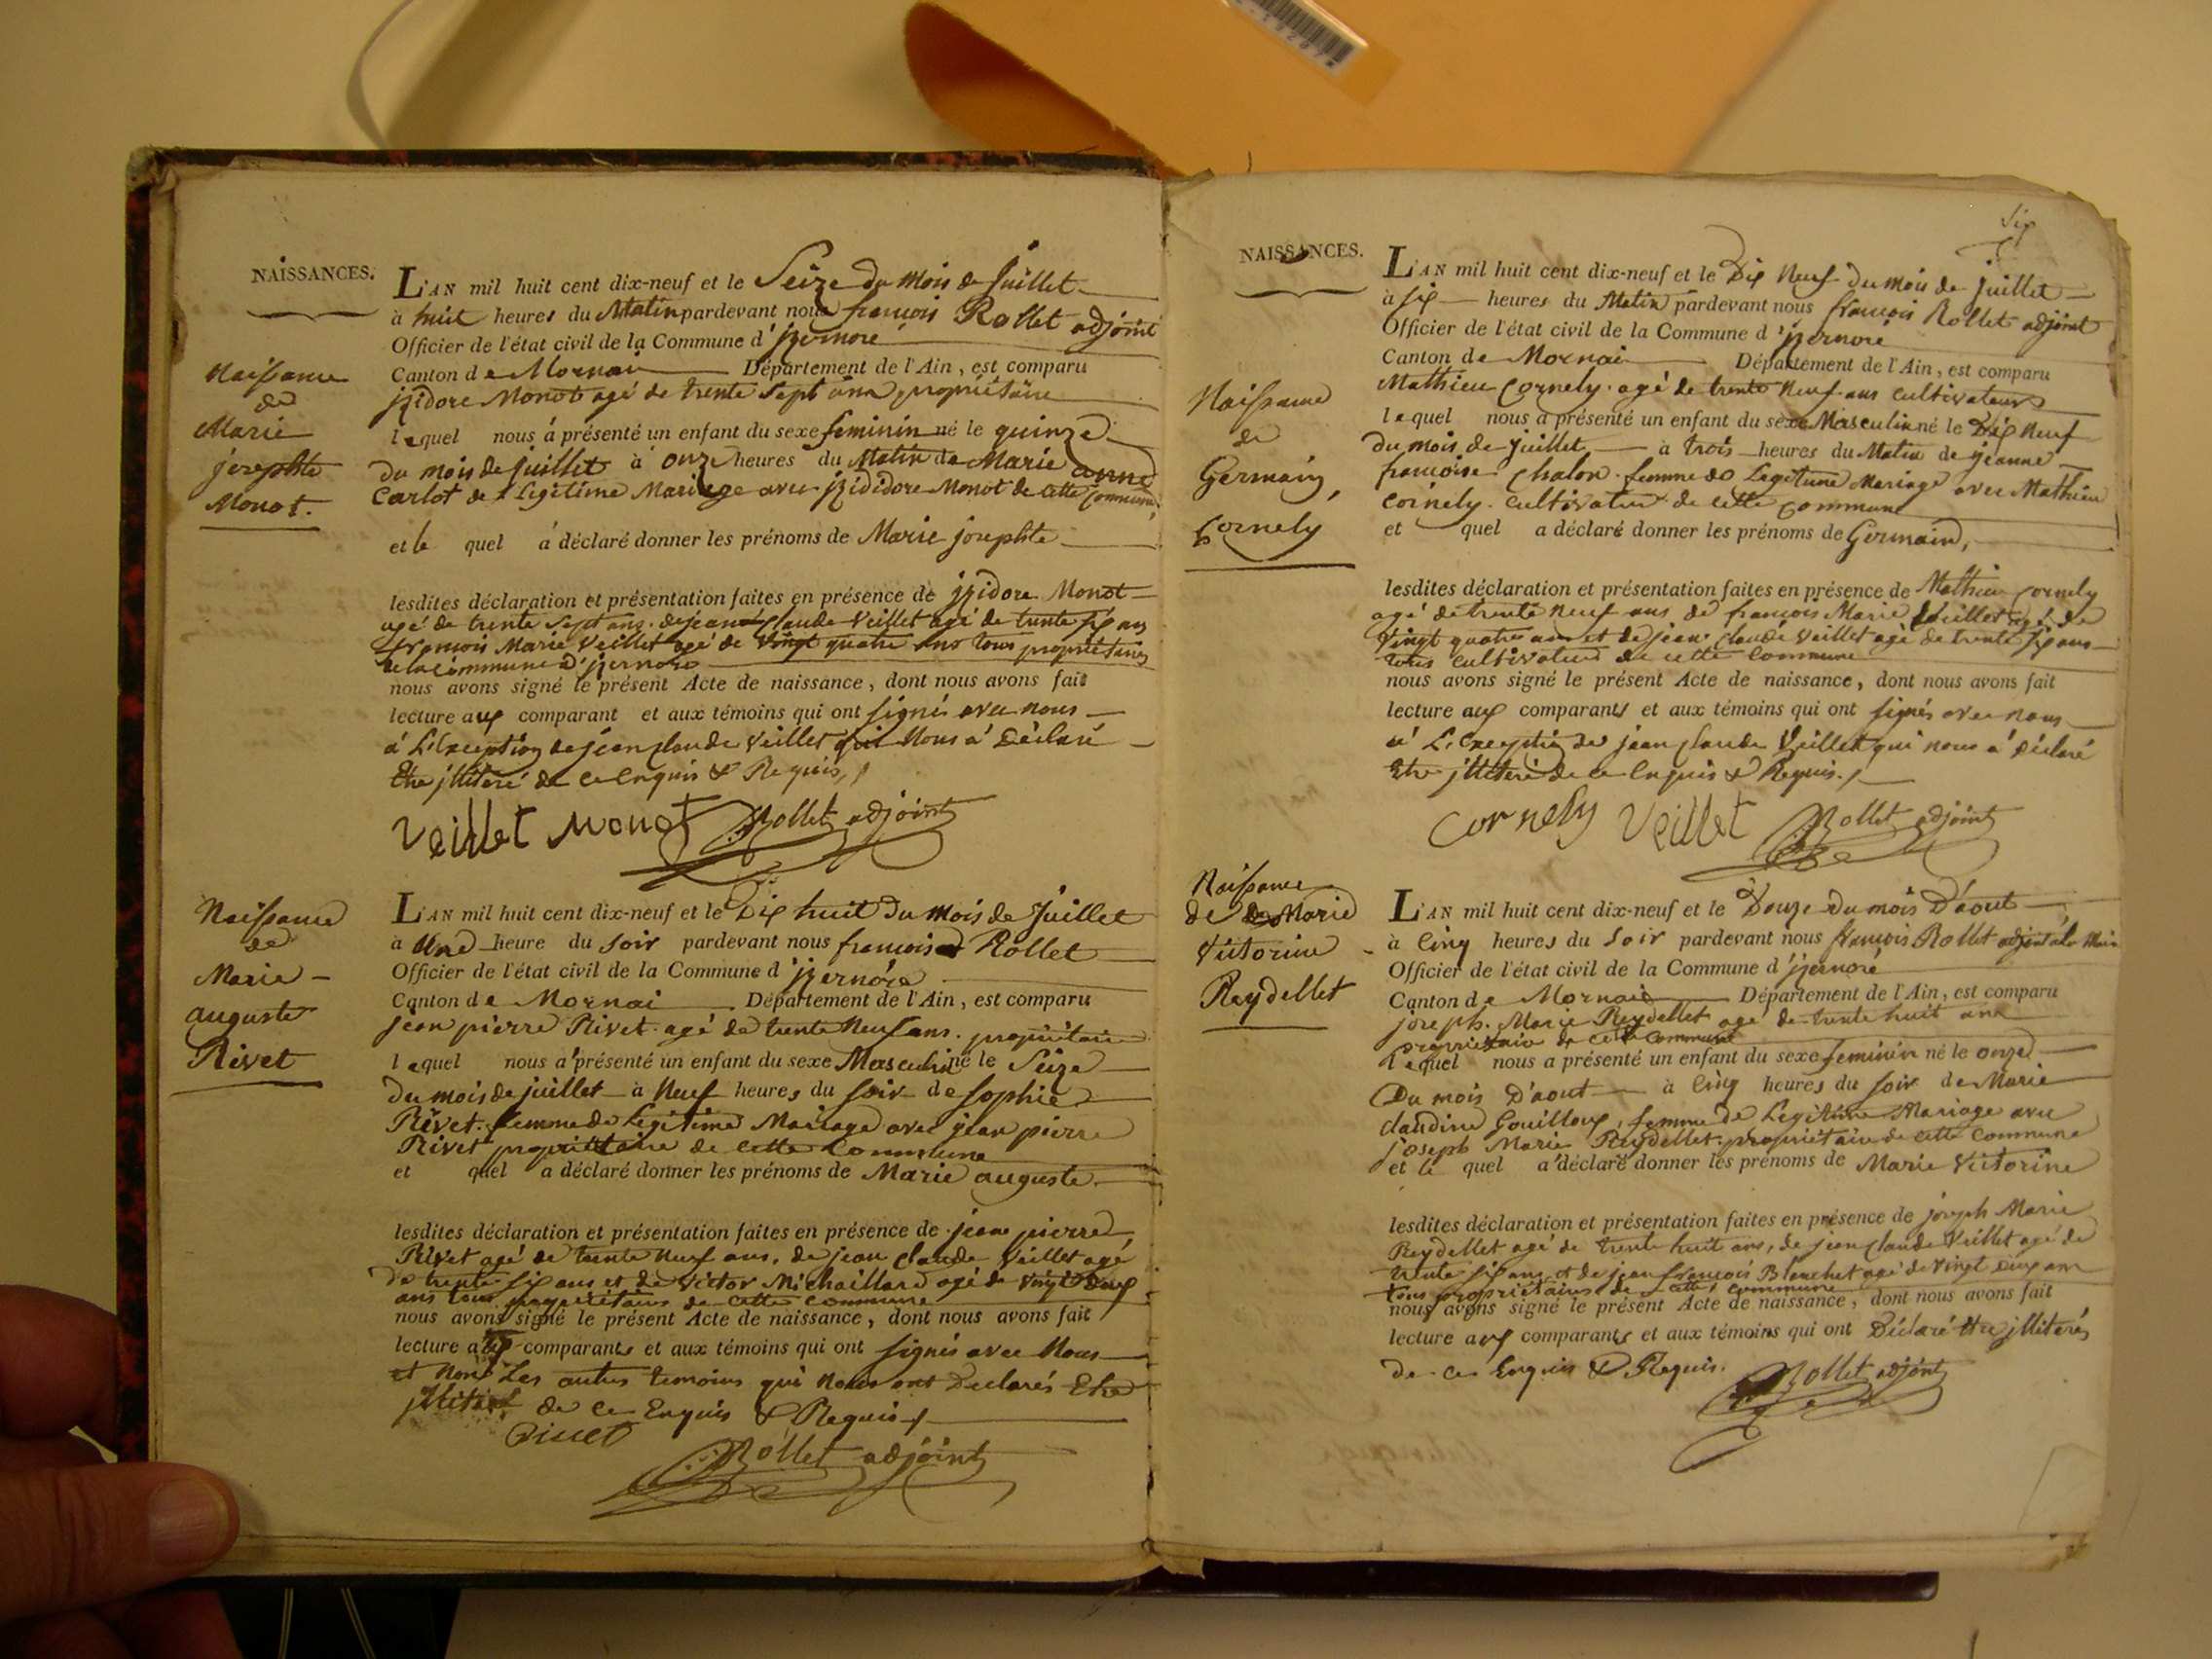 NAISSANCES.
Naissance
de
Marie
josephte
Monot.
L'AN mil huit cent dix-neuf et le Seize du mois de Juillet
à huit heures du Matin pardevant nous françois Rollet adjoint
Officier de l'état civil de la Commune d'izernore
Canton de Mornai Département de l'Ain, est comparu
izidore Monot agé de trente Sept ans propriétaire
lequel nous a présenté un enfant du sexe feminin né le quinze
du mois de juillet à onze heures du Matin de Marie anne
Carlot de Legitime Mariage avec izididore Monot de cette Commune,
et le quel a déclaré donner les prénoms de Marie josephte
lesdites déclaration et présentation faites en présence de izidore Monot
agé de trente Sept ans. de jean Claude Veillet agé de trente six ans
françois Marie Veillet agé de Vingt quatre ans tous propriétaires
de la Commune d'izernore
nous avons signé le présent Acte de naissance, dont nous avons fait
lecture aux comparant et aux témoins qui ont signés avec nous
à L'Exception de jean Claude Veillet qui Nous a Déclaré
Etre illiteré de ce Enquis & Requis,
Veillet Monot Rollet adjoint
Naissance
de
Marie
auguste
Rivet
L'AN mil huit cent dix-neuf et le Dix huit Du Mois de Juillet
à Une heure du Soir pardevant nous françois Rollet
Officier de l'état civil de la Commune d'izernore
Canton de Mornai Département de l'Ain, est comparu
jean pierre Rivet agé de trente Neuf ans. propriétaire
lequel nous a présenté un enfant du sexe Masculin né le Seize
du mois de juillet à Neuf heures du Soir de Sophie
Rivet. femme de Legitime Mariage avec jean pierre
Rivet propriétaire de cette Commune
et quel a déclaré donner les prénoms de Marie auguste
lesdites déclaration et présentation faites en présence de jean pierre
Rivet agé de trente Neuf ans, de jean Claude Veillet agé
de trente six ans et de Victor Michaillard agé de Vingt deux
ans tous propriétaires de cette Commune
nous avons signé le présent Acte de naissance, dont nous avons fait
lecture aux comparants et aux témoins qui ont signés avec Nous
et Non Les autres temoins qui Nous ont Declarés Etre
de ce Enquis & Requis
Rollet adjoint
Six
NAISSANCES.
Naissance
de
Germain,
Cornely
L'AN mil huit cent dix-neuf et le Dix Neuf du mois de juillet
à six heures du Matin pardevant nous françois Rollet adjoint
Officier de l'état civil de la Commune d'izernore
Canton de Mornai Département de l'Ain, est comparu
Mathieu Cornely agé de trente Neuf ans cultivateur
lequel nous a présenté un enfant du sexe Masculin né le Dix Neuf
du mois de juillet à trois heures du Matin de jeanne
françoise Chalon femme de Legitime Mariage avec Mathieu
Cornely. cultivateur de cette commune
et quel a déclaré donner les prénoms de Germain,
lesdites déclaration et présentation faites en présence de Mathieu Cornely
agé de trente Neuf ans de françois Marie Veillet agé de
Vingt quatre ans et de jean Claude Veillet agé de trente six ans
tous cultivateurs de cette Commune
nous avons signé le présent Acte de naissance, dont nous avons fait
lecture aux comparants et aux témoins qui ont signés avec nous
a L'Exception de jean Claude Veillet qui nous a déclaré
Etre illiteré de ce Enquis & Requis.
Cornely Veillet Rollet adjoint
Naissance
de Marie
Victorine
Reydellet
L'AN mil huit cent dix-neuf et le Douze du mois D'aout
à Cinq heures du Soir pardevant nous françois Rollet
Officier de l'état civil de la Commune d'izernore
Canton de Mornai Département de l'Ain, est comparu
joseph. Marie Reydellet agé de trente huit ans
propriétaire de cette Commune
lequel nous a présenté un enfant du sexe feminin né le onze
Du mois D'aout à Cinq heures du Soir de Marie
claudine Gouilloux, femme de Legitime Mariage avec
joseph Marie Reydellet propriétaire de cette Commune
et le quel a déclaré donner les prénoms de Marie Victorine
lesdites déclaration et présentation faites en présence de joseph Marie
Reydellet agé de trente huit ans, de jean Claude Veillet agé de
trente six ans, et de jean françois Blanchet agé de Vingt ans
tous propriétaires de cette commune
nous avons signé le présent Acte de naissance, dont nous avons fait
lecture aux comparants et aux témoins qui ont Déclaré Etre illiterés
de ce Enquis & Requis.
Rollet adjoint